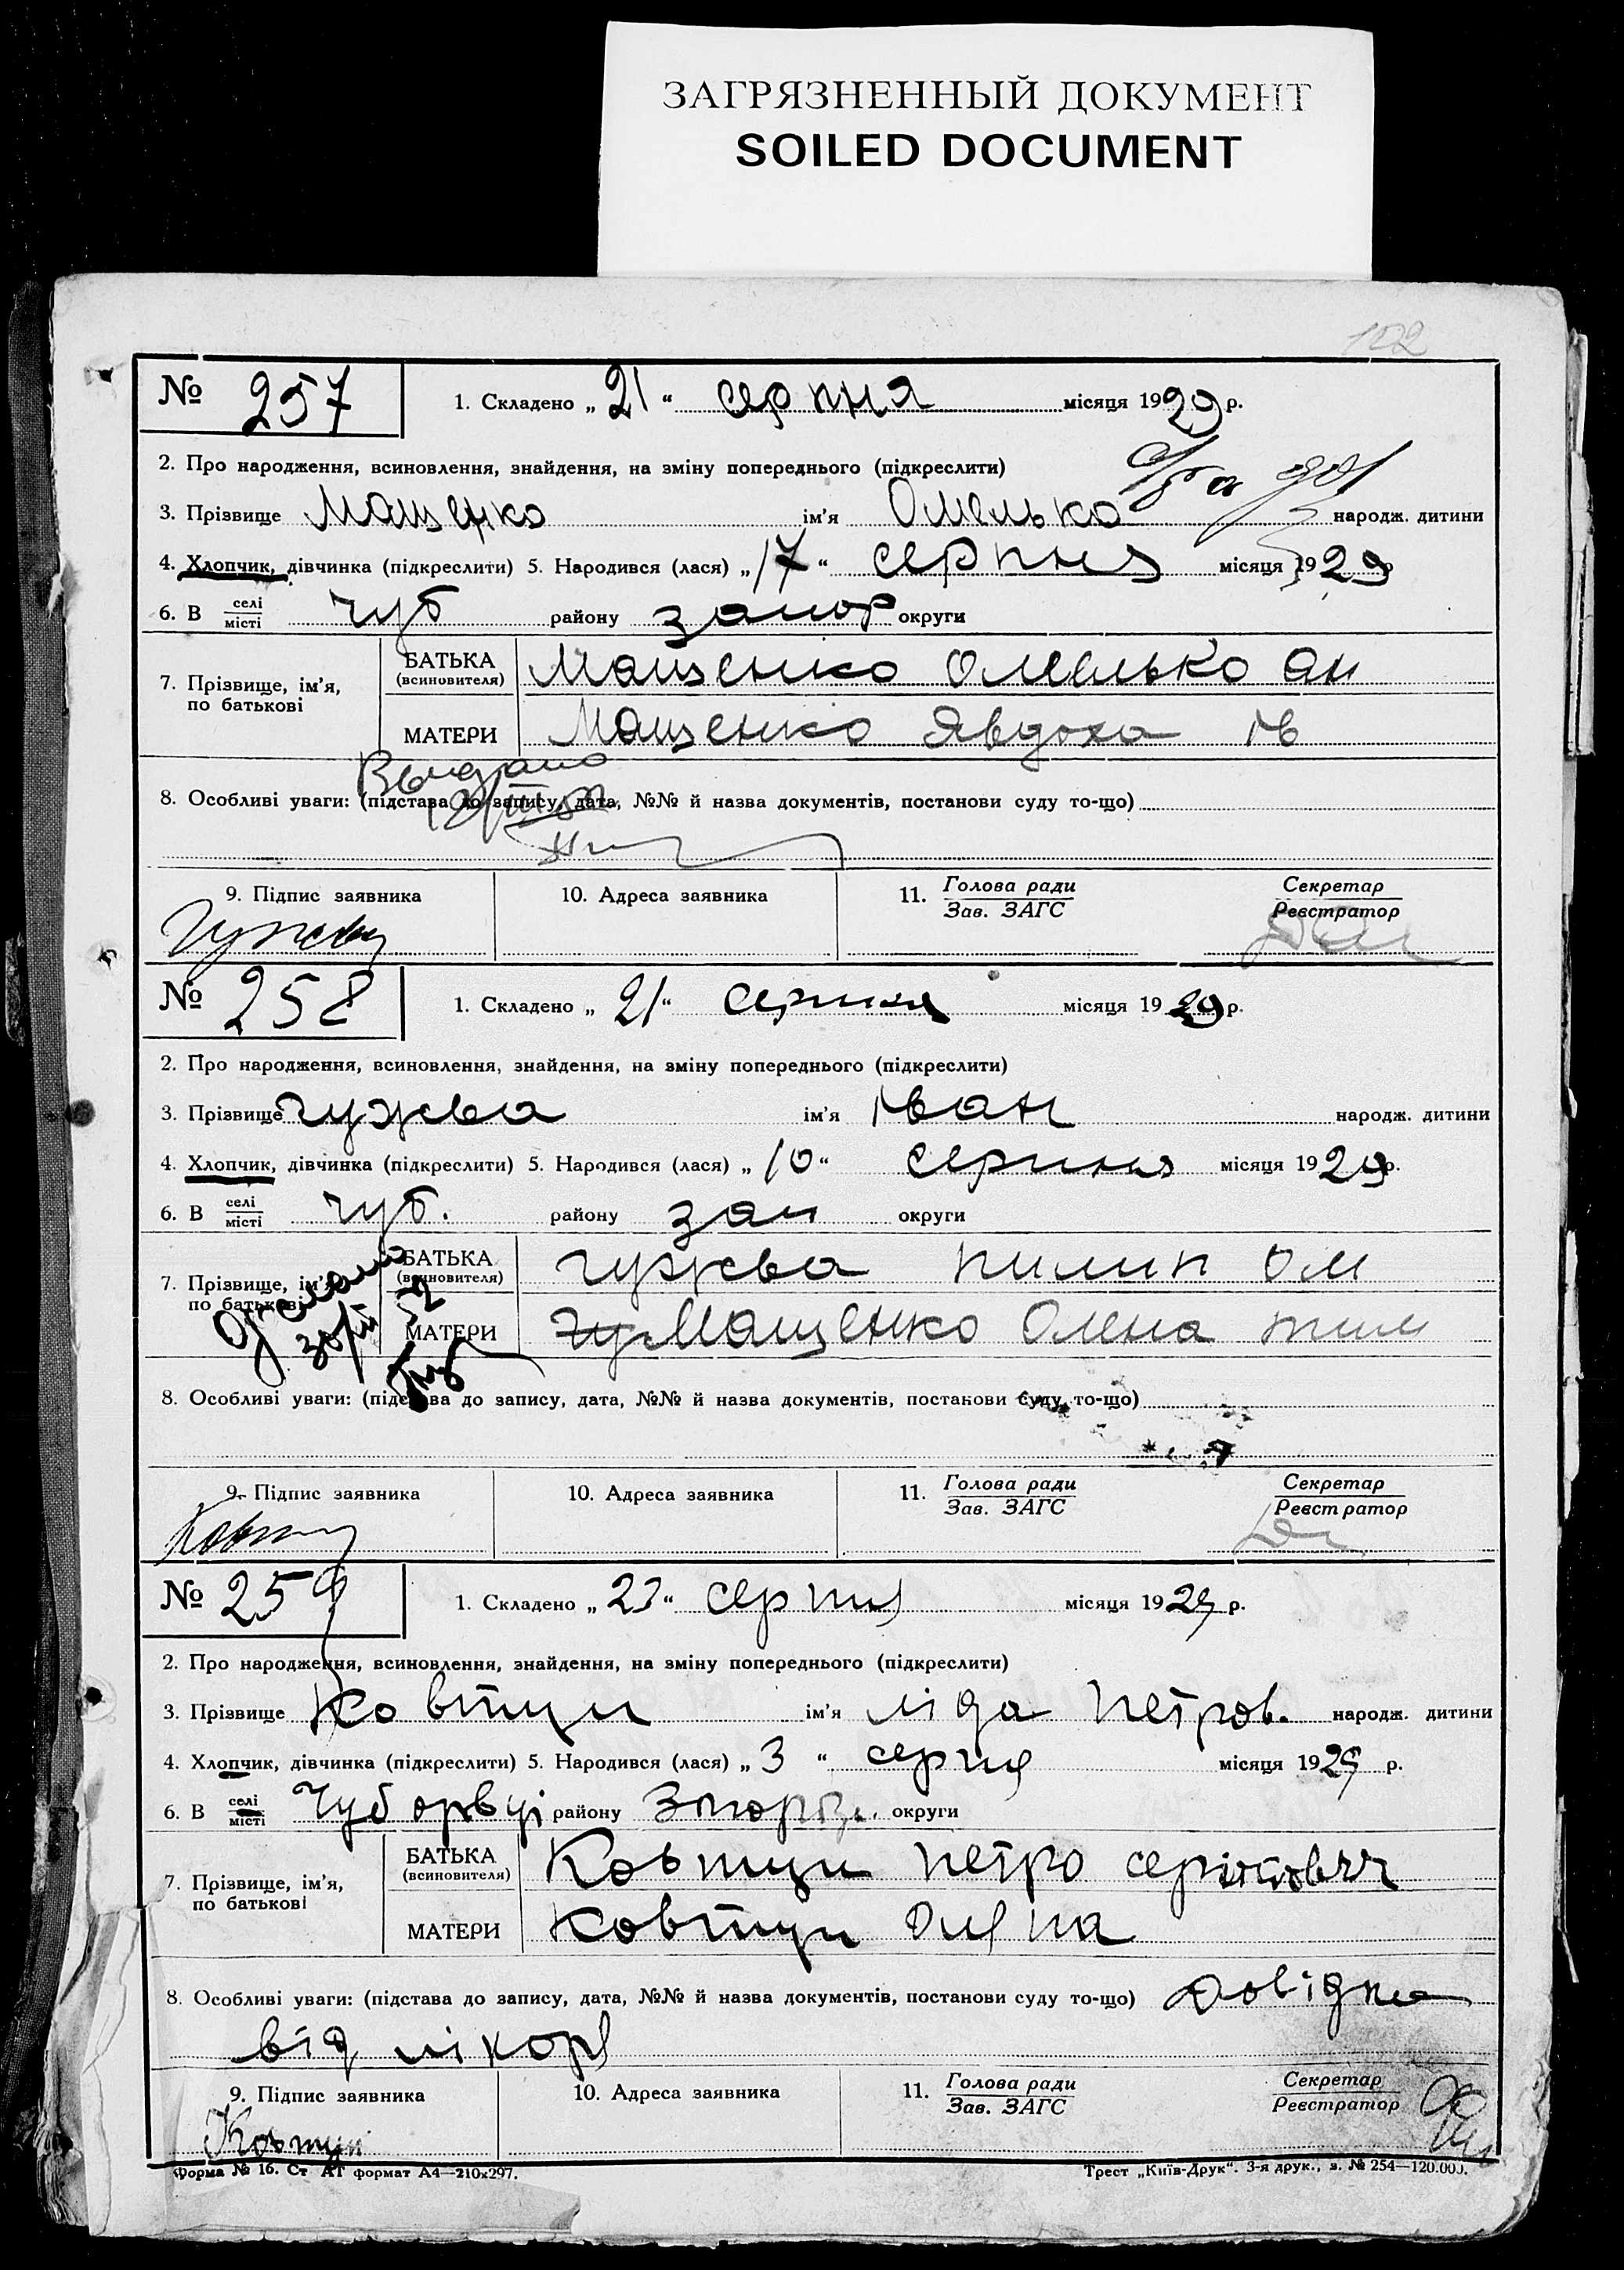 ЗАГРЯЗНЕННЫЙ ДОКУМЕНТ
SOILED DOCUMENT
122
№ 257 1. Складено „21“ серпня місяця 1929 р.
2. Про народження, всиновлення, знайдення, на зміну попереднього (підкреслити)
3. Прізвище Мащенко ім'я Омелько народж. дитини
4. Хлопчик, дівчинка (підкреслити) 5. Народився (лася) „17“ серпня місяця 1929 р
6. В селі місті Чуб району запор округи
7. Прізвище, ім'я, по батькові
БАТЬКА (всиновителя) Мащенко Омелько Ан
МАТЕРИ Мащенко Явдоха Ів
Выдано
8. Особливі уваги: (підстава до запису, дата, №№ й назва документів, постанови суду то-що)
9. Підпис заявника 10. Адреса заявника 11. Голова ради Зав. ЗАГС Секретар Реєстратор
№ 258 1. Складено „21“ серпня місяця 1929 р.
2. Про народження, всиновлення, знайдення, на зміну попереднього (підкреслити)
3. Прізвище Чужва ім'я Іван народж. дитини
4. Хлопчик, дівчинка (підкреслити) 5. Народився (лася) „10“ серпня місяця 1929 р.
6. В селі місті Чуб. району зап округи
7. Прізвище, ім'я, по батькові
БАТЬКА (всиновителя) Чужва Пилип Ом
МАТЕРИ Мащенко Олена Тим
8. Особливі уваги: (підстава до запису, дата, №№ й назва документів, постанови суду то-що)
9. Підпис заявника 10. Адреса заявника 11. Голова ради Зав. ЗАГС Секретар Реєстратор
№ 259 1. Складено „23“ серпня місяця 1929 р.
2. Про народження, всиновлення, знайдення, на зміну попереднього (підкреслити)
3. Прізвище Ковтун ім'я Ліда Петров. народж. дитини
4. Хлопчик, дівчинка (підкреслити) 5. Народився (лася) „3“ серпня місяця 1929 р.
6. В селі місті району округи
7. Прізвище, ім'я, по батькові
БАТЬКА (всиновителя) Ковтун Петро
МАТЕРИ Ковтун
8. Особливі уваги: (підстава до запису, дата, №№ й назва документів, постанови суду то-що) Довідка
від лікоря
9. Підпис заявника 10. Адреса заявника 11. Голова ради Зав. ЗАГС Секретар Реєстратор
Ковтун
Форма № 16. Ст АТ формат А4—210x297. Трест „Київ-Друк“. 3-я друк., з. № 254—120.000.